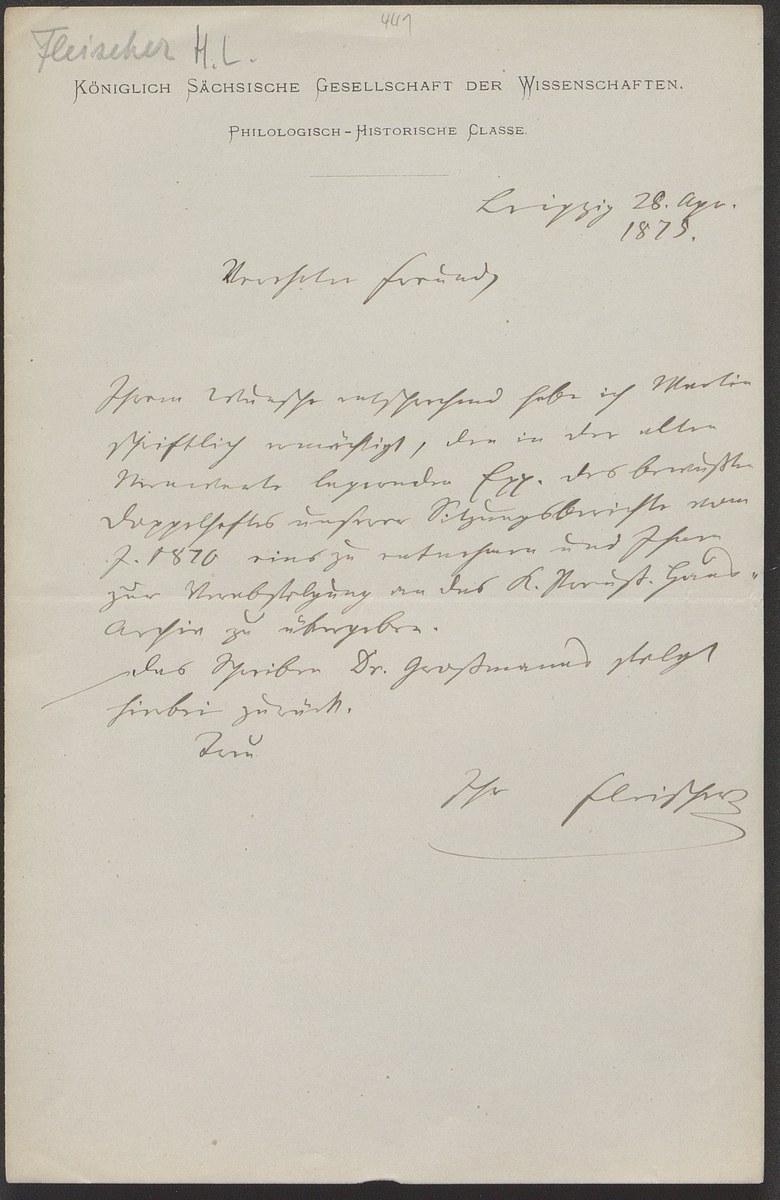 441
Fleischer H. L.
KÖNIGLICH SÄCHSISCHE GESELLSCHAFT DER WISSENSCHAFTEN.
PHILOLOGISCH-HISTORISCHE CLASSE.
Leipzig 28. Apr.
1875.
Verehrter Freund,
Ihrem Wunsche entsprechend habe ich Martin
schriftlich ermächtigt, den in der alten
lagernden Exx. des bewußten
Doppelheftes unserer Sitzungsberichte vom
J. 1870 eins zu entnehmen und Ihnen
zur Verabfolgung an das K. Preuß. Haus-
Archiv zu übergeben.
Das Schreiben Dr. Großmanns folgt
hierbei zurück.
Treu
Ihr Fleischer